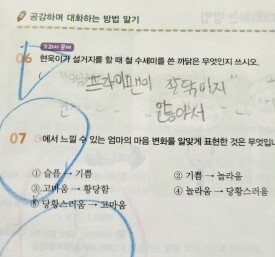 공감하며 대화하는 방법 알기
교과서 문제
06 현욱이가 설거지를 할 때 철 수세미를 쓴 까닭은 무엇인지 쓰시오.
프라이팬이 잘 닦이지
않아서
07 에서 느낄 수 있는 엄마의 마음 변화를 알맞게 표현한 것은 무엇입니
① 슬픔 → 기쁨 ② 기쁨 → 놀라움
③ 고마움 → 황당함 ④ 놀라움 → 당황스러움
⑤ 당황스러움 → 고마움